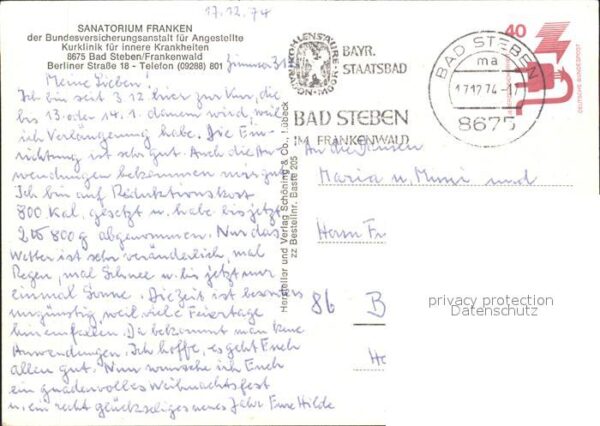 17.12.74
SANATORIUM FRANKEN
der Bundesversicherungsanstalt für Angestellte
Kurklinik für innere Krankheiten
8675 Bad Steben/Frankenwald
Berliner Straße 18 - Telefon (09288) 801
Zimmer 31
Meine Lieben!
Ich bin seit 3.12 hier zur Kur, die
bis 13. oder 14.1. dauern wird, weil
ich Verlängerung habe. Die Ein-
richtung ist sehr gut. Auch die An-
wendungen bekommen mir gut.
Ich bin auf Reduktionskost
800 Kal. gesetzt u. habe bis jetzt
2 800 g abgenommen. Nur das
Wetter ist sehr veränderlich, mal
Regen, mal Schnee u. bis jetzt nur
einmal Sonne. Die Zeit ist besonders
ungünstig, weil viele Feiertage
hineinfallen. Da bekommt man keine
Anwendungen. Ich hoffe, es geht Euch
allen gut. Nun wünsche ich Euch
ein gnadenvolles Weihnachtsfest
u. ein recht glückseliges neues Jahr Eure Hilde
Hersteller und Verlag Schöning & Co., Lübeck
zz Bestellnr. Baste 205
BAYR.
STAATSBAD
BAD STEBEN
IM FRANKENWALD
BAD STEBEN
ma
17.12.74-17
8675
40
DEUTSCHE BUNDESPOST
An die
Maria u. Mimi und
Herrn Fr
86 B
privacy protection
Datenschutz